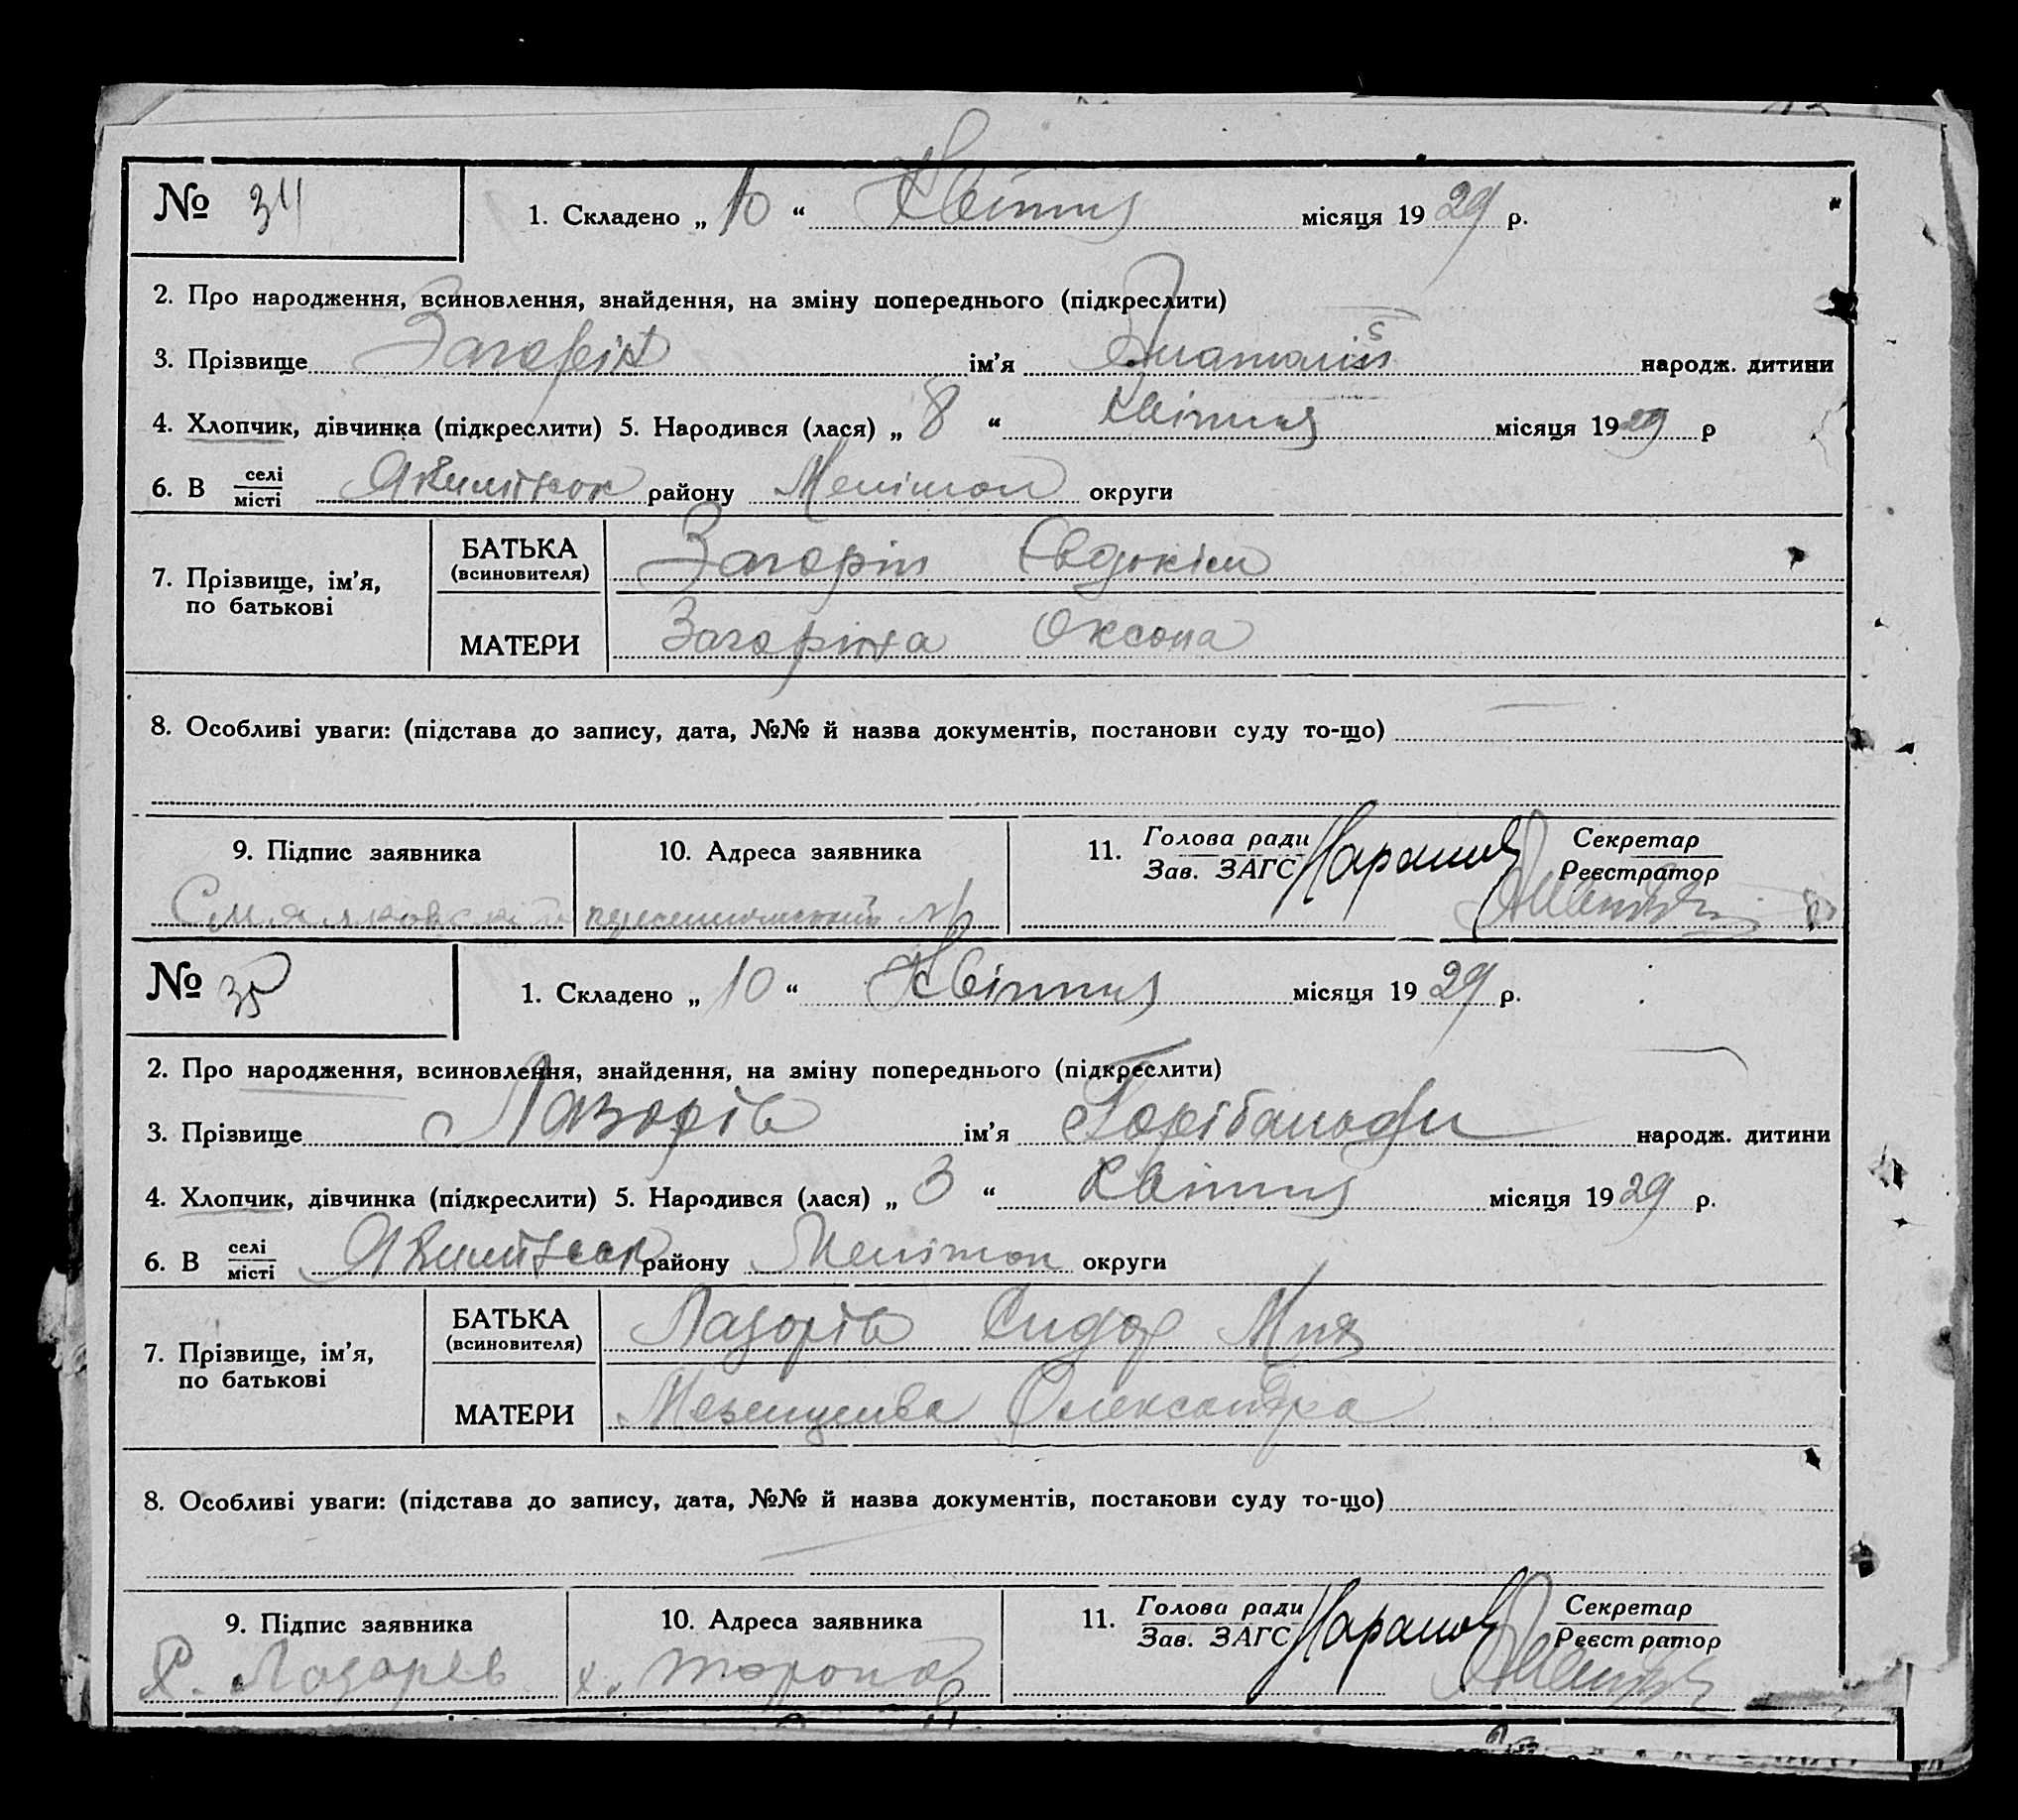 № 34
1. Складено „ 10 “ Квітня місяця 19 29 р.
2. Про народження, всиновлення, знайдення, на зміну попереднього (підкреслити)
3. Прізвище Загорін ім’я Анатолій народж. дитини
4. Хлопчик, дівчинка (підкреслити) 5. Народився (лася) „ 8 “ Квітня місяця 19 29 р
6. В селі місті району Меліт округи
7. Прізвище, ім’я, по батькові
БАТЬКА (всиновителя) Загорін Євдокім
МАТЕРИ Загоріна Оксана
8. Особливі уваги: (підстава до запису, дата, №№ й назва документів, постанови суду то-що)
9. Підпис заявника
10. Адреса заявника
11. Голова ради Зав. ЗАГС
Секретар Реєстратор
№ 35
1. Складено „ 10 “ Квітня місяця 19 29 р.
2. Про народження, всиновлення, знайдення, на зміну попереднього (підкреслити)
3. Прізвище Лазорів ім’я Горібальди народж. дитини
4. Хлопчик, дівчинка (підкреслити) 5. Народився (лася) „ 3 “ Квітня місяця 19 29 р.
6. В селі місті району Мелітоп округи
7. Прізвище, ім’я, по батькові
БАТЬКА (всиновителя) Лазорів Сидор
МАТЕРИ Мезенцева Олександра
8. Особливі уваги: (підстава до запису, дата, №№ й назва документів, постанови суду то-що)
9. Підпис заявника
10. Адреса заявника
11. Голова ради Зав. ЗАГС
Секретар Реєстратор
Лазарев
х.